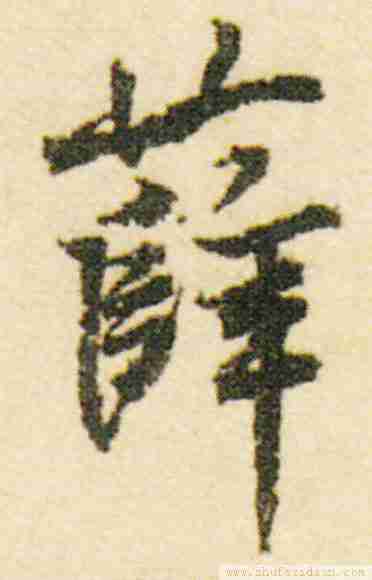 薛
www.shufazidian.com